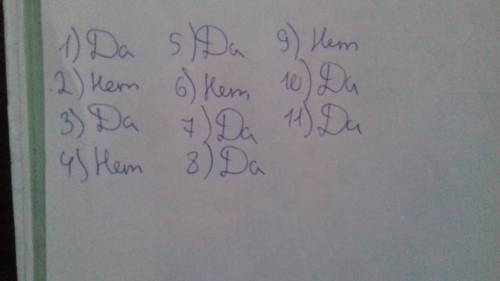 1) Да
2) Нет
3) Да
4) Нет
5) Да
6) Нет
7) Да
8) Да
9) Нет
10) Да
11) Да